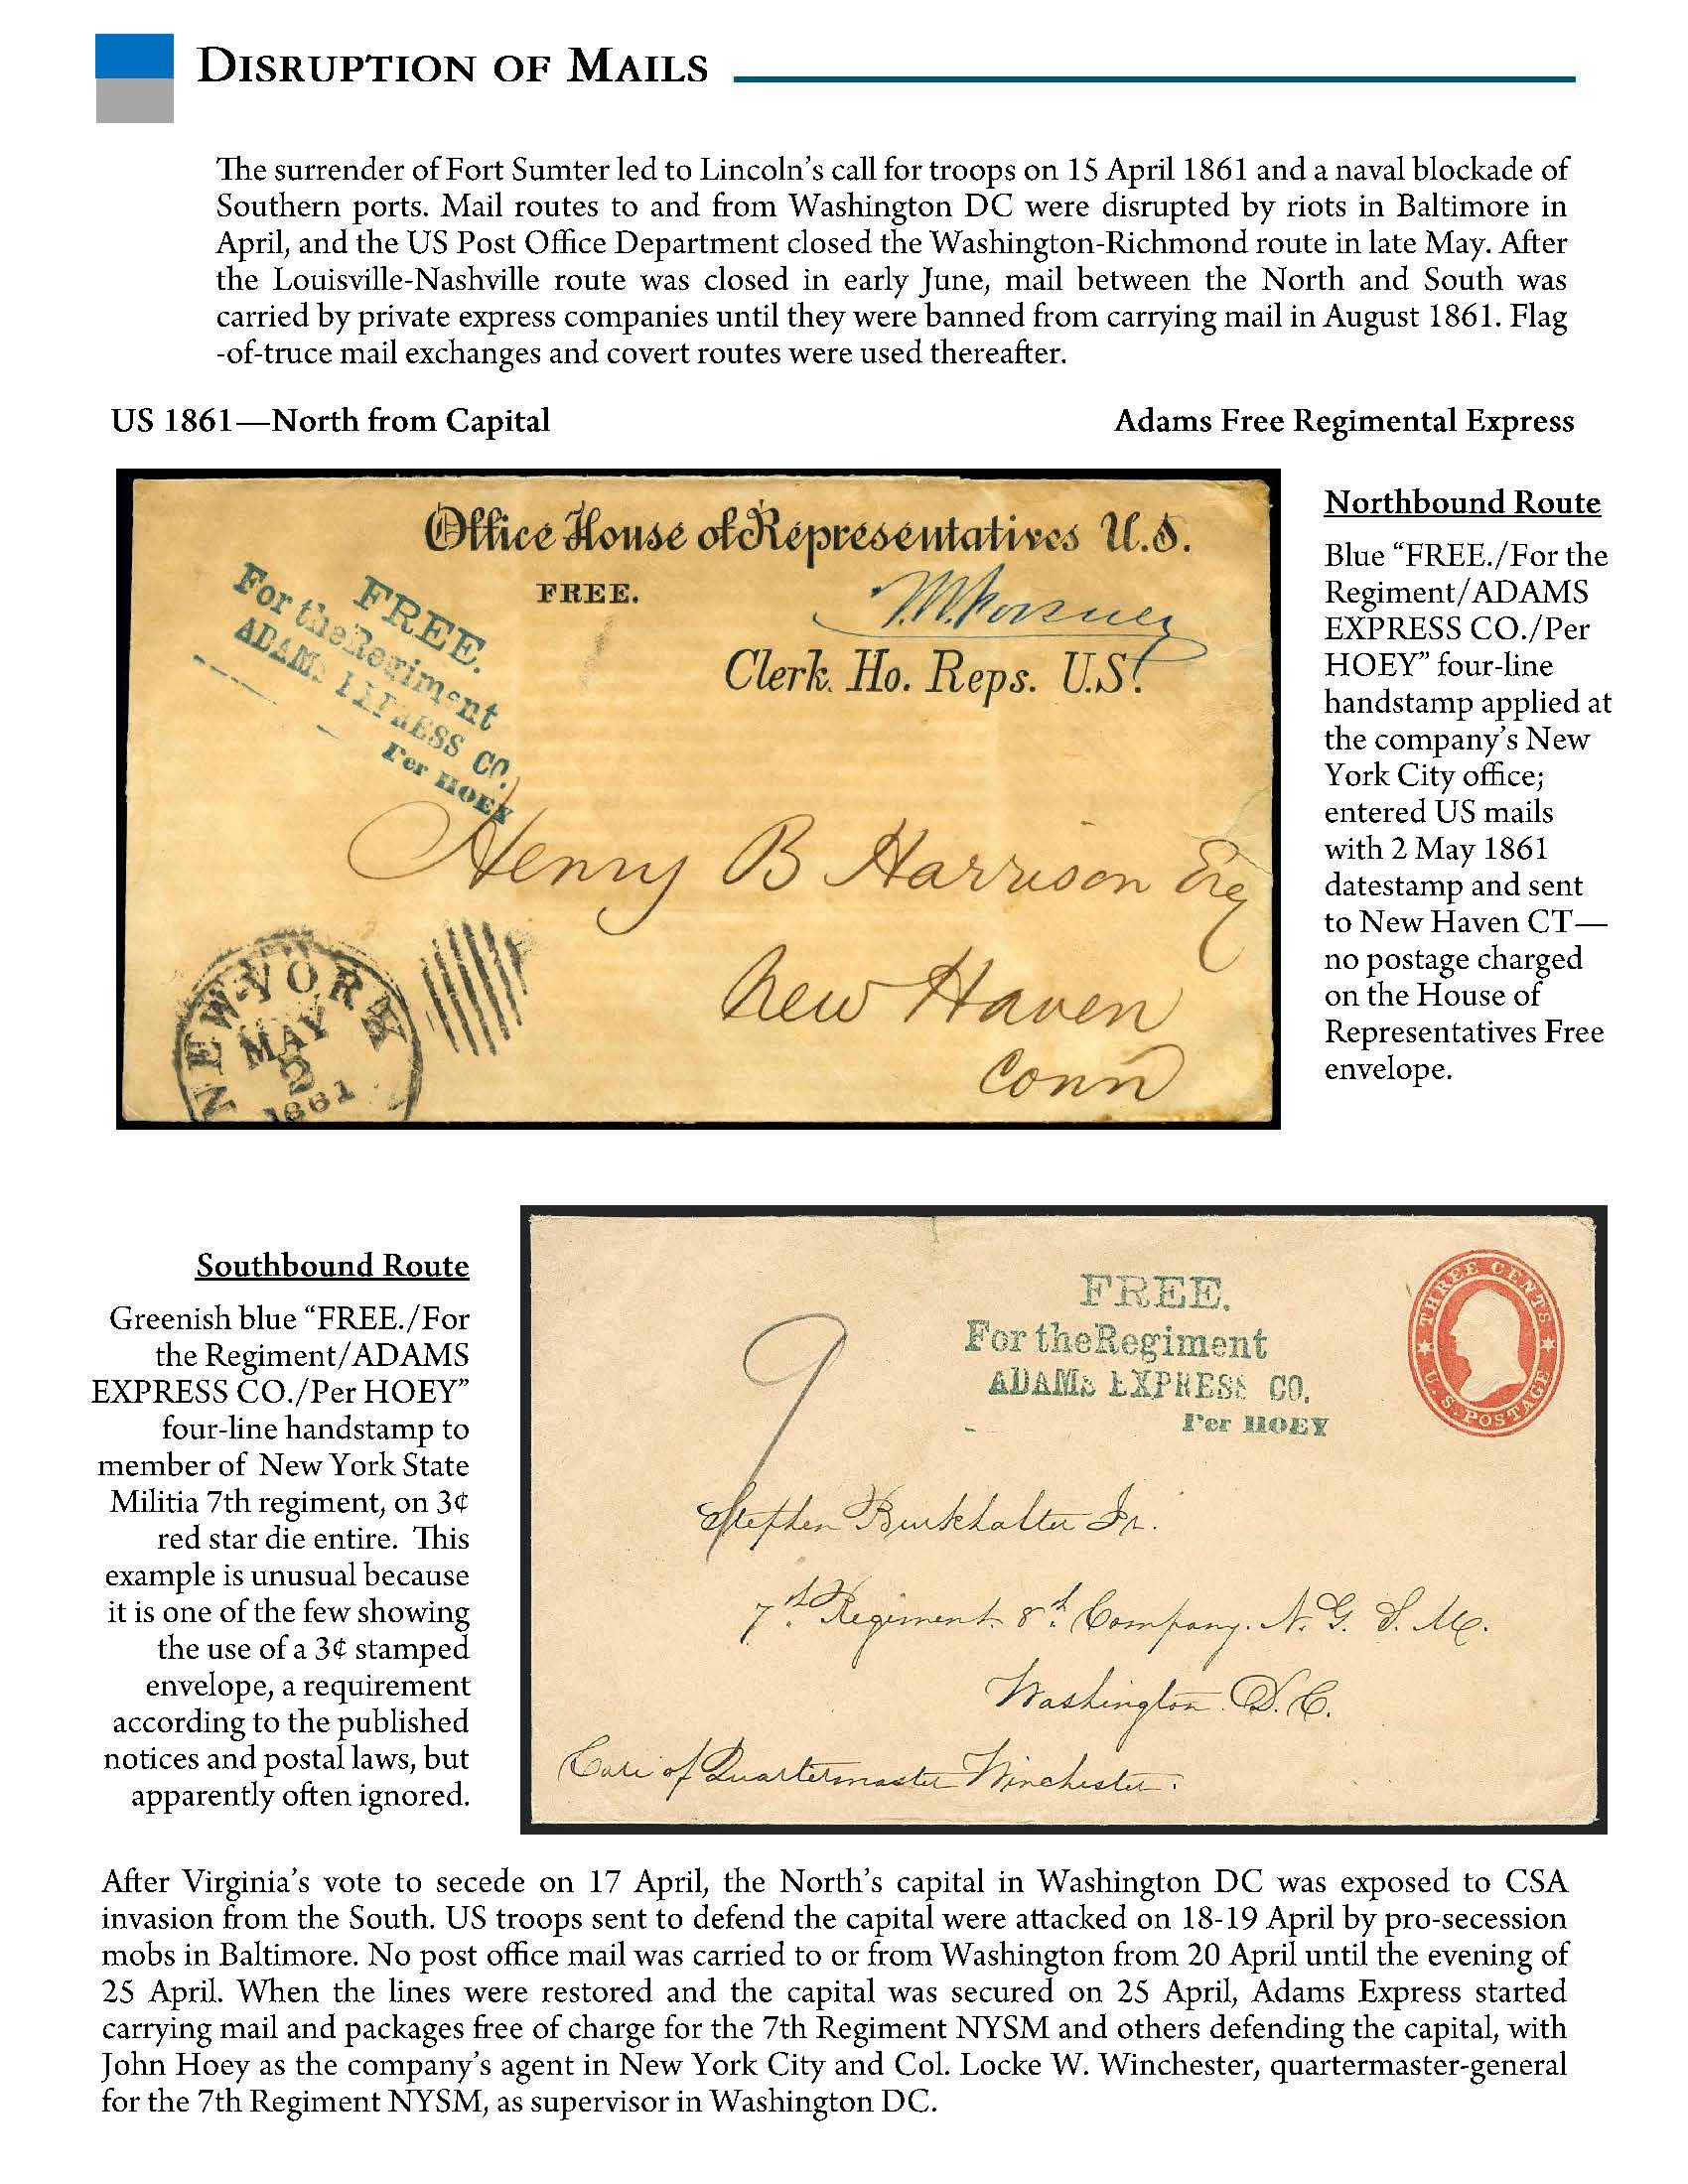 DISRUPTION OF MAILS
The surrender of Fort Sumter led to Lincoln's call for troops on 15 April 1861 and a naval blockade of
Southern ports. Mail routes to and from Washington DC were disrupted by riots in Baltimore in
April, and the US Post Office Department closed the Washington-Richmond route in late May. After
the Louisville-Nashville route was closed in early June, mail between the North and South was
carried by private express companies until they were banned from carrying mail in August 1861. Flag
-of-truce mail exchanges and covert routes were used thereafter.
US 1861—North from Capital
Adams Free Regimental Express
Office House of Representatives U.S.
FREE.
Clerk. Ho. Reps. U.S.
FREE.
For the Regiment
ADAMS EXPRESS CO.
Per HOEY
Henry B Harrison Esq
New Haven
Conn
NEW-YORK
MAY
2
1861
Northbound Route
Blue “FREE./For the
Regiment/ADAMS
EXPRESS CO./Per
HOEY” four-line
handstamp applied at
the company's New
York City office;
entered US mails
with 2 May 1861
datestamp and sent
to New Haven CT—
no postage charged
on the House of
Representatives Free
envelope.
Southbound Route
Greenish blue “FREE./For
the Regiment/ADAMS
EXPRESS CO./Per HOEY”
four-line handstamp to
member of New York State
Militia 7th regiment, on 3¢
red star die entire. This
example is unusual because
it is one of the few showing
the use of a 3¢ stamped
envelope, a requirement
according to the published
notices and postal laws, but
apparently often ignored.
FREE.
For the Regiment
ADAMS EXPRESS CO.
Per HOEY
THREE CENTS
U.S. POSTAGE
9
Stephen Burkhalter Jr.
7th Regiment. 8th Company. N. G. S. M.
Washington. D. C.
Care of Quartermaster Winchester.
After Virginia's vote to secede on 17 April, the North's capital in Washington DC was exposed to CSA
invasion from the South. US troops sent to defend the capital were attacked on 18-19 April by pro-secession
mobs in Baltimore. No post office mail was carried to or from Washington from 20 April until the evening of
25 April. When the lines were restored and the capital was secured on 25 April, Adams Express started
carrying mail and packages free of charge for the 7th Regiment NYSM and others defending the capital, with
John Hoey as the company's agent in New York City and Col. Locke W. Winchester, quartermaster-general
for the 7th Regiment NYSM, as supervisor in Washington DC.